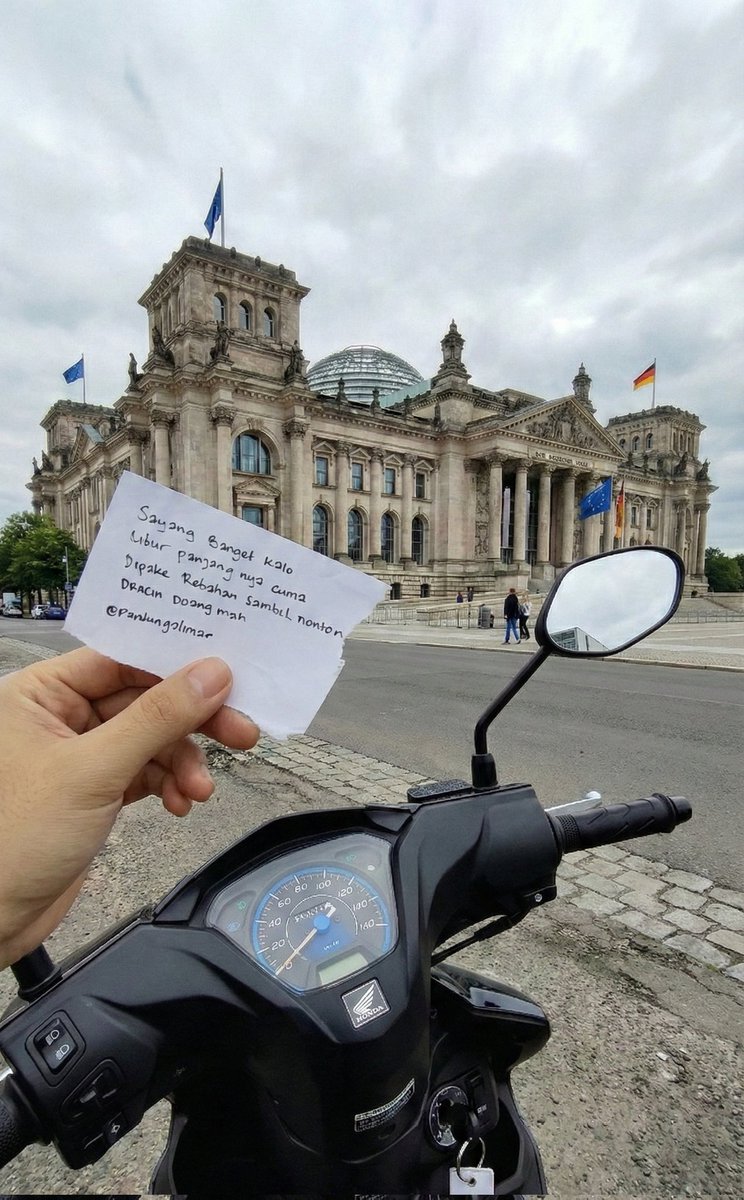 Sayang Banget kalo
Libur panjang nya cuma
Dipake Rebahan sambil nonton
DRACIN Doang mah
0 20 40 60 80 100 120 140 160
HONDA